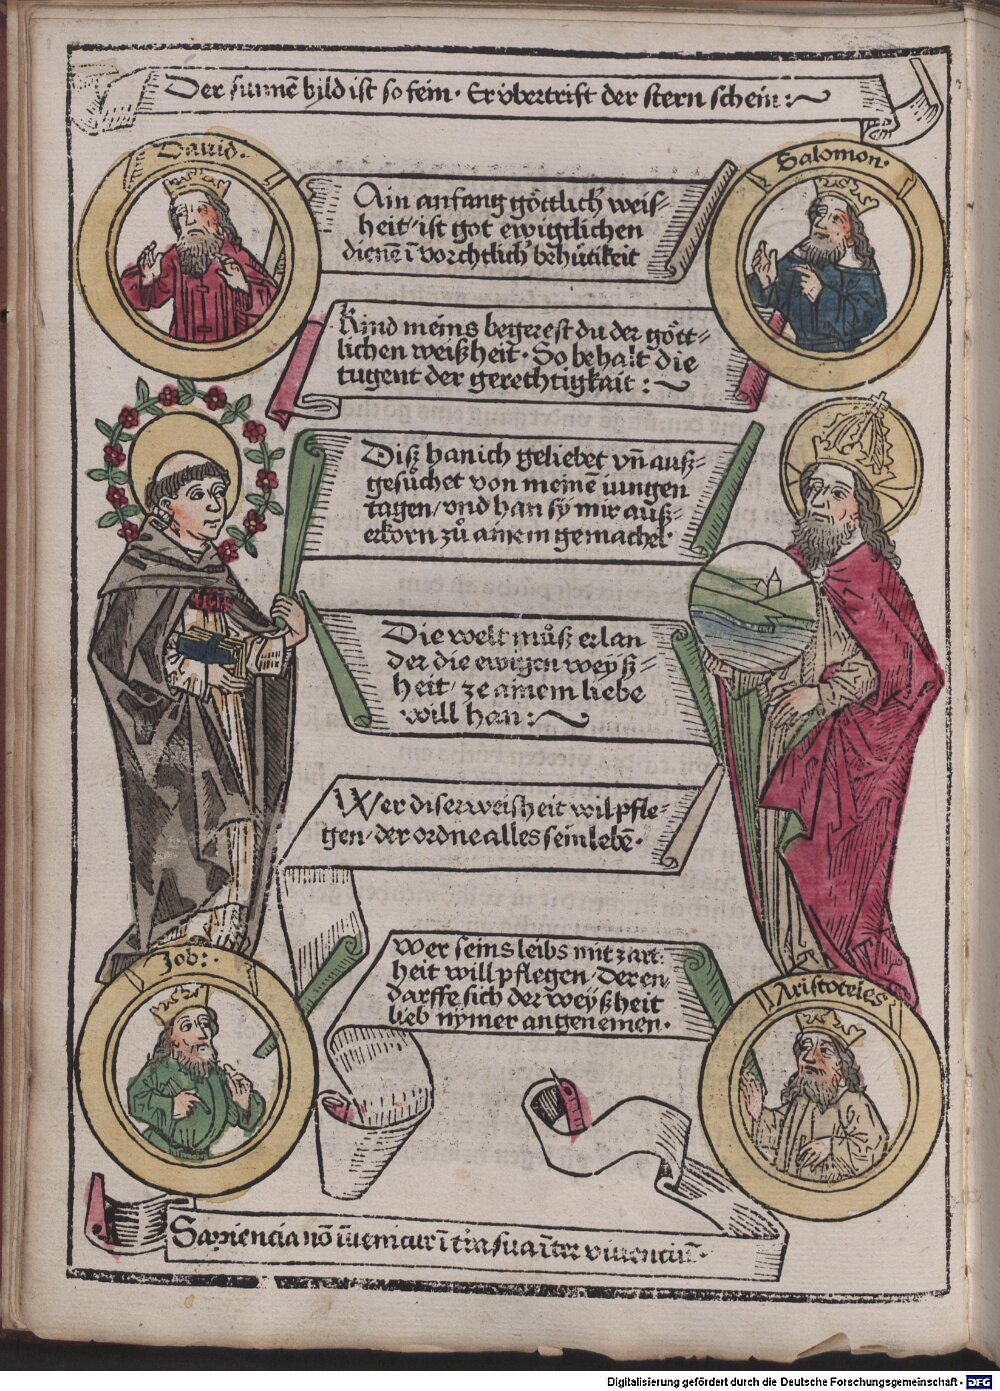 Der sunnē byld ist so fein · Er vbertrift der stern schein :~
Dauid ·
Salomon ·
Ain anfang göttlich weis-
heit / ist got ewigclichen
dienē ī vorchtlich' behütikeit
Kind meins begerest du der gött-
lichen weißheit · So behalt die
tugent der gerechtigkait : ~
Disz han ich geliebet vn̄ ausz-
gesůchet von meinē iungen
tagen / vnd han sy mir ausz-
erkorn zů ainem gemachel ·
Die welt můsz erlan
der die ewigen weysz-
heit / ze ainem liebe
will han : ~
Wer diser weisheit wil pfle-
gen / der ordne alles sein lebē ·
Wer seins leibs mit zart-
heit will pflegen / Der en
darffe sich der weyßheit
lieb nymer angenemen ·
Job : ·
Aristoteles
Sapiencia nō īuenitur ī tr̄a suauiter viuenciū ·
Digitalisierung gefördert durch die Deutsche Forschungsgemeinschaft · DFG